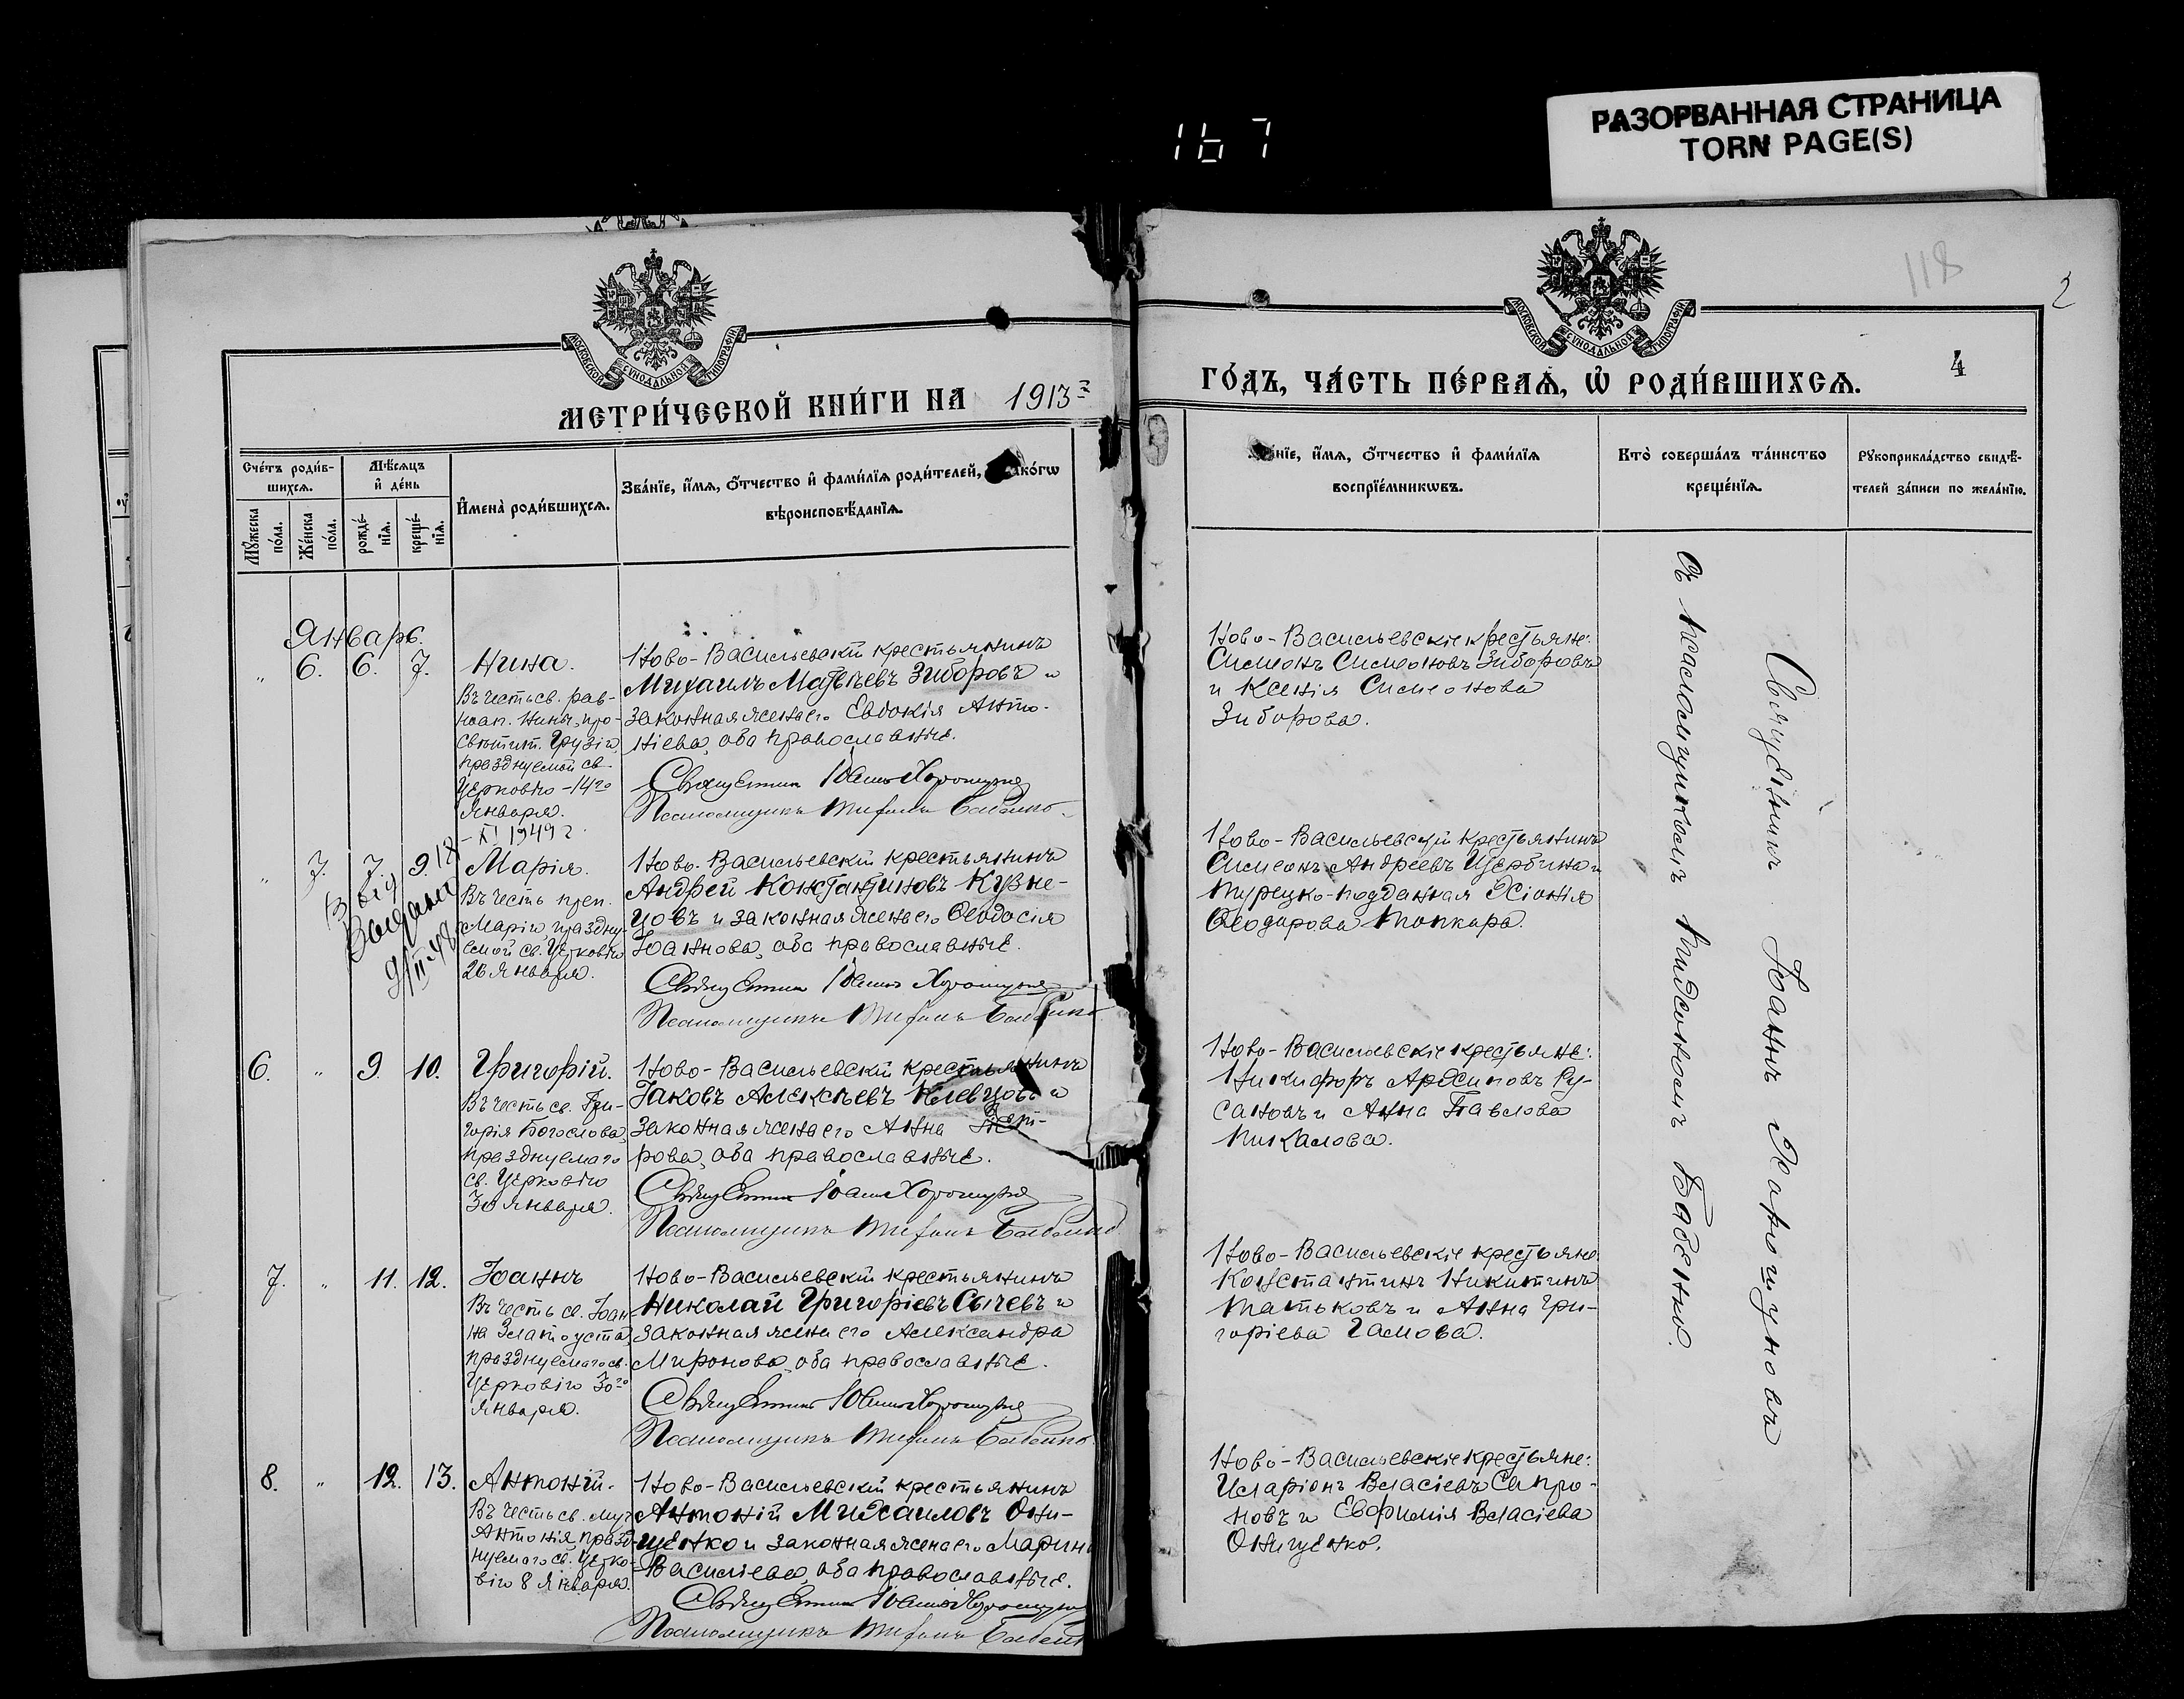 167
РАЗОРВАННАЯ СТРАНИЦА
TORN PAGE(S)
118
2
4
МОСКОВСКОЙ СѴНОДАЛЬНОЙ ТИПОГРАФІИ
МОСКОВСКОЙ СѴНОДАЛЬНОЙ ТИПОГРАФІИ
МЕТРИ́ЧЕСКОЙ КНИ́ГИ НА 1913
ГО́ДЪ, ЧА́СТЬ ПЕ́РВАѦ, Ѡ҆ РОДИ́ВШИХСѦ.
Сче́тъ роди́в-
шихсѧ.
Мѣ́сѧцъ
и҆ де́нь
Мꙋ́жеска
по́ла.
Же́нска
по́ла.
рожде́-
нїѧ.
креще́-
нїѧ.
И҆мена̀ роди́вшихсѧ.
Зва́нїе, и҆́мѧ, ѻ҆́тчество и҆ фами́лїѧ роди́телей,
ако́гѡ
вѣроисповѣ́данїѧ.
нїе, и҆́мѧ, ѻ҆́тчество и҆ фами́лїѧ
воспрїе́мникѡвъ.
Кто̀ соверша́лъ та́инство
креще́нїѧ.
Рꙋкоприкла́дство свидѣ́-
телей за́писи по жела́нїю.
Январь.
„ 6. 6. 7.
Нина.
Въ честь св. рав-
ноап. Нины, про-
свѣтит. Грузіи,
празднуемой св.
Церковію - 14го
Января.
- XI 1949 г.
Ново-Васильевскій крестьянинъ
Михаилъ Матвѣевъ Зиборовъ и
законная жена его Евдокія Анто-
ніева, оба православные.
Священникъ Іоаннъ Хорошуновъ
Псаломщикъ Тифонъ Бабенко
Ново-Васильевскіе крестьяне:
Симеонъ Симеоновъ Зиборовъ
и Ксенія Симеонова
Зиборова.
„ 7. 7. 9.
Марія.
Въ честь преп.
Маріи, праздну-
емой св. Церковію
26 Января.
Ново-Васильевскій крестьянинъ
Андрей Константиновъ Кузне-
цовъ и законная жена его Ѳеодосія
Іоаннова, оба православные.
Священникъ Іоаннъ Хорошуновъ
Псаломщикъ Тифонъ Бабенко
Ново-Васильевскій крестьянинъ
Симеонъ Андреевъ Щербина и
турецко-подданная
Ѳеодорова Топкара.
6. „ 9. 10.
Григорій.
Въ честь св. Гри-
горія Богослова,
празднуемаго
св. Церковію
30 Января.
Ново-Васильевскій крестьянинъ
Іаковъ Алексѣевъ Клевцовъ и
законная жена его Анна Пет-
рова, оба православные.
Священникъ Іоаннъ Хорошуновъ
Псаломщикъ Тифонъ Бабенко
Ново-Васильевскіе крестьяне:
Никифоръ Ру-
сановъ и Анна Павлова
Пикалова.
7. „ 11. 12.
Іоаннъ
Въ честь св. Іоан-
на Златоуста,
празднуемаго св.
Церковію 30го
Января.
Ново-Васильевскій крестьянинъ
Николай Григоріевъ Сычевъ и
законная жена его Александра
Миронова, оба православные.
Священникъ Іоаннъ Хорошуновъ
Псаломщикъ Тифонъ Бабенко
Ново-Васильевскіе крестьяне
Константинъ Никитинъ
Татьковъ и Анна Гри-
горіева Гамова.
8. „ 12. 13.
Антоній.
Въ честь св. муч.
Антонія, празд-
нуемаго св. Церко-
вію 8 Января.
Ново-Васильевскій крестьянинъ
Антоній Михаиловъ Они-
щенко и законная жена его Марина
Василіева, оба православные.
Священникъ Іоаннъ Хорошуновъ
Псаломщикъ Тифонъ Бабенко
Ново-Васильевскіе крестьяне:
Иларіонъ Власіевъ Сапро-
новъ и Евфимія Власіева
Онищенко.
Священникъ Іоаннъ Хорошуновъ
съ псаломщикомъ Бабенко.